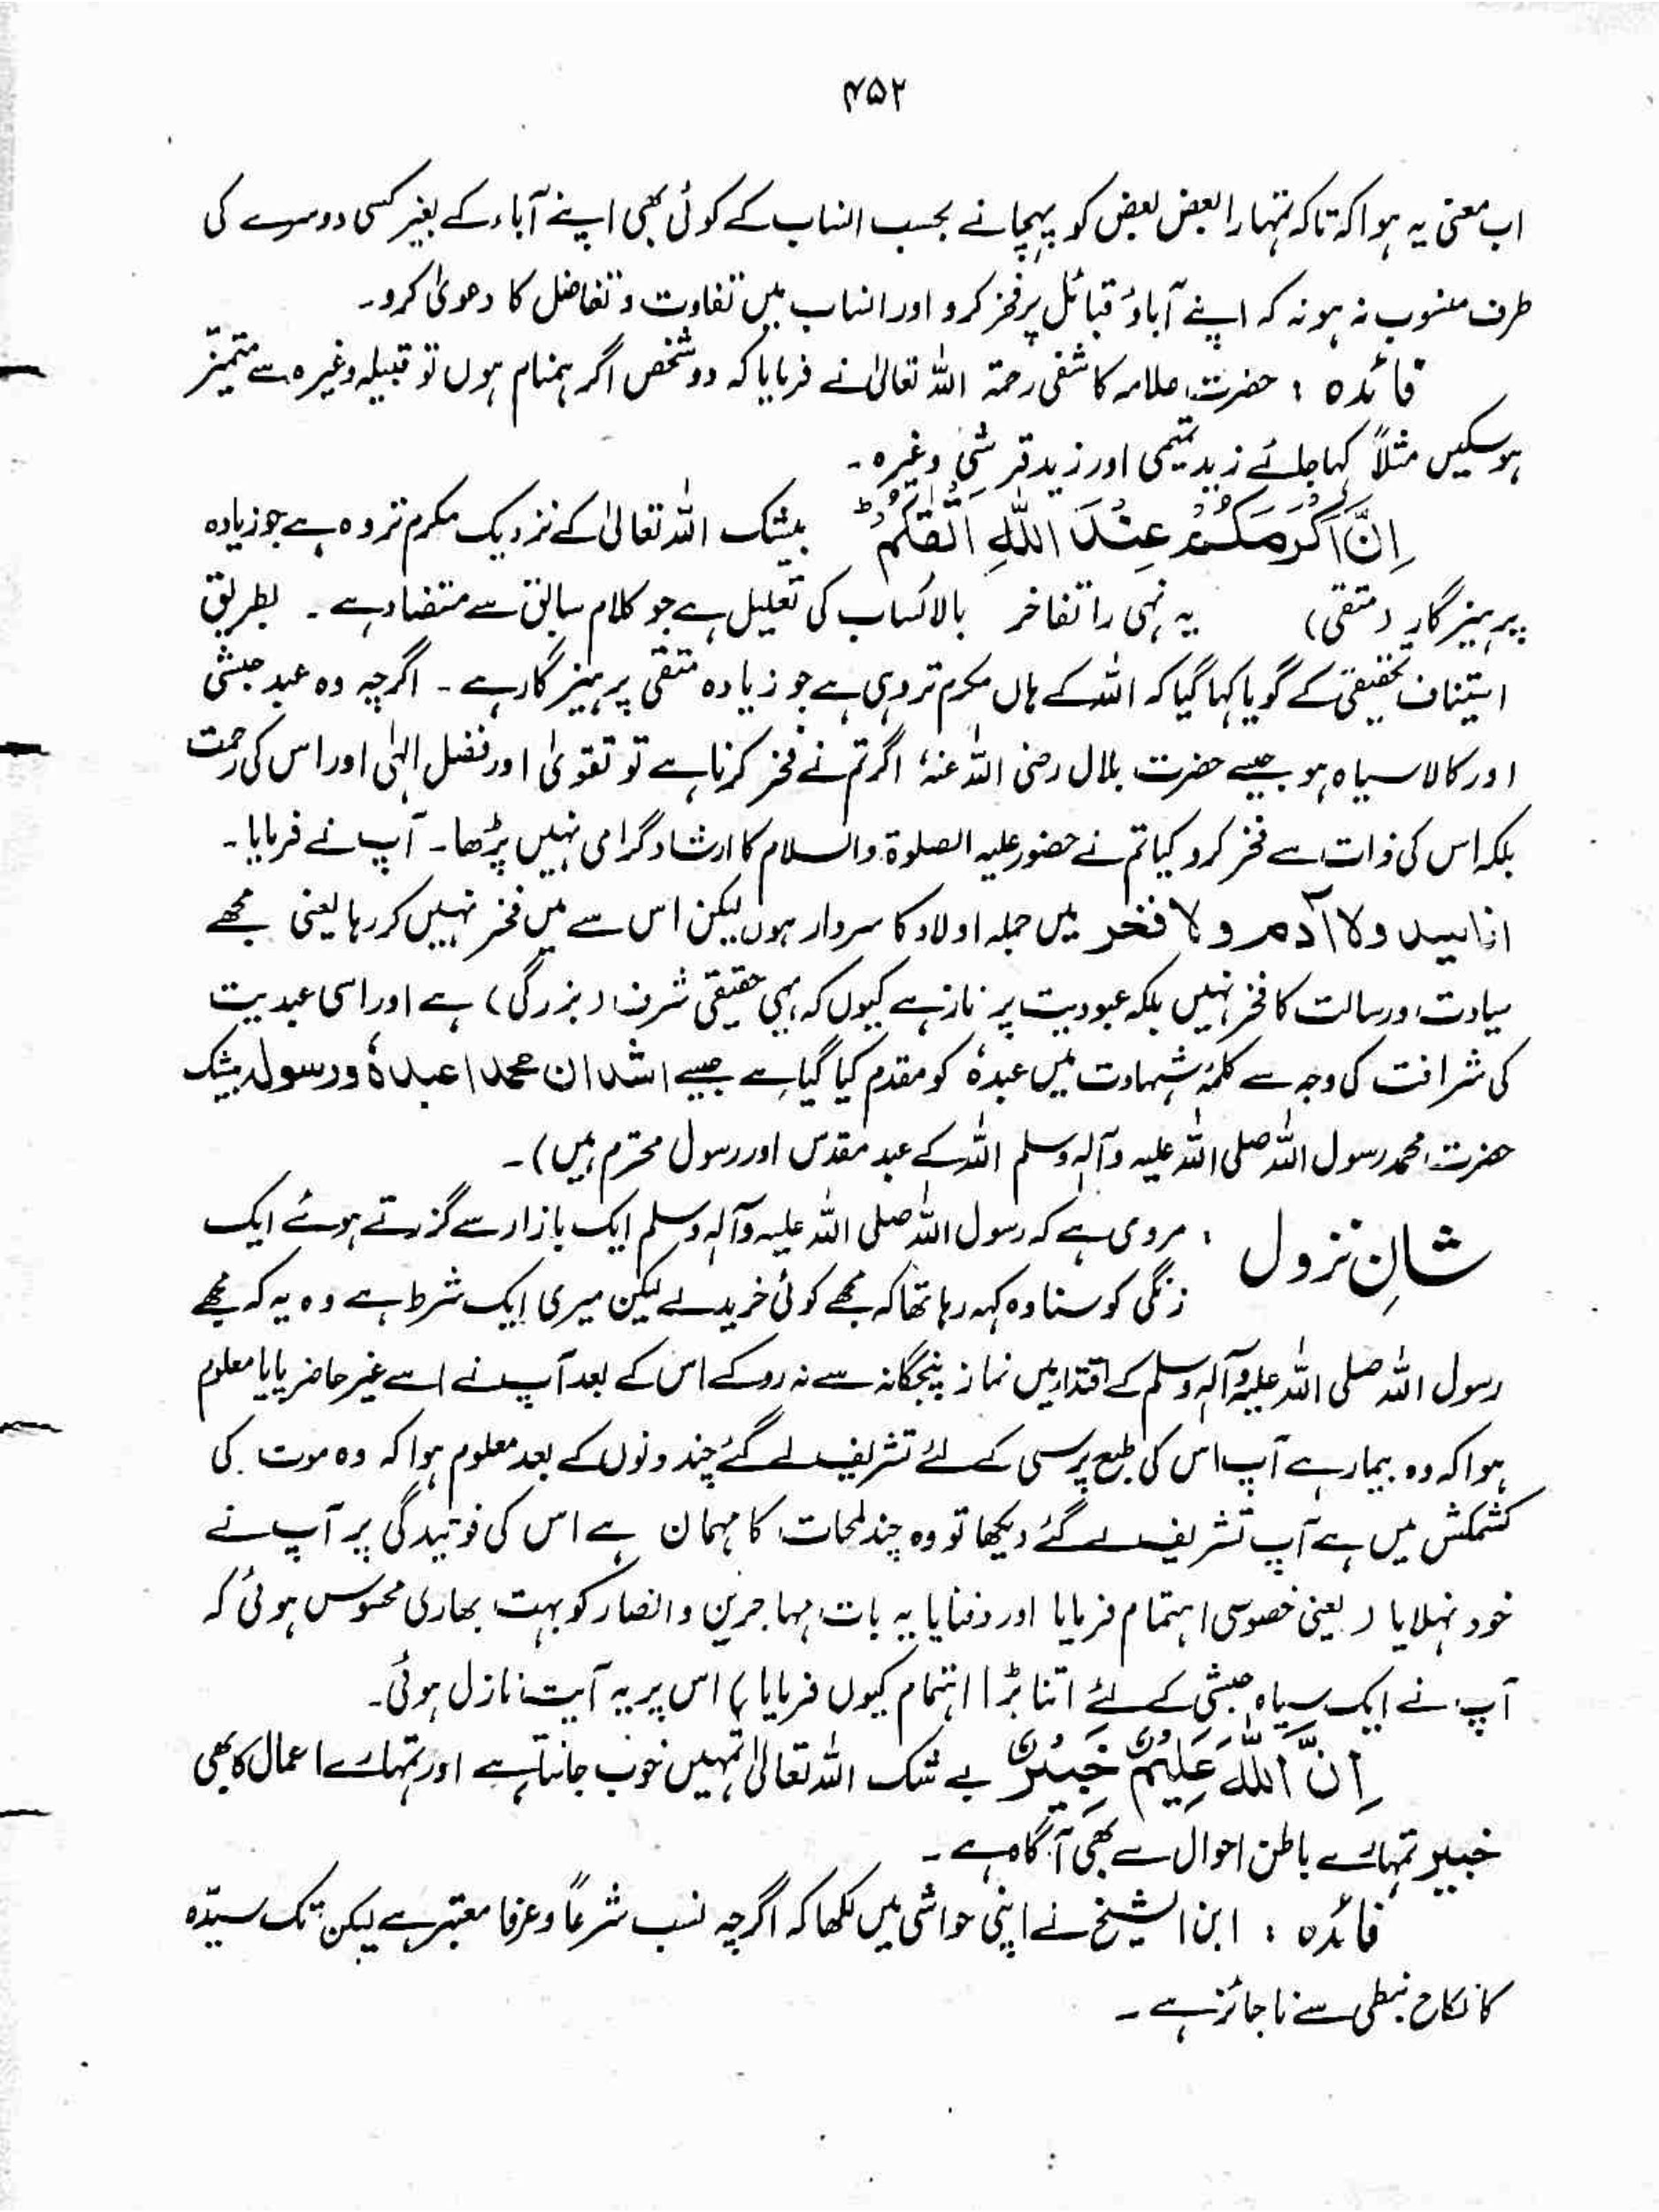 ۴۵۲
اب معنی یہ ہوا کہ تاکہ تمہارا بعض بعض کو پہچانے بحسب انساب کے کوئی بھی اپنے آباء کے بغیر کسی دوسرے کی
طرف منسوب نہ ہو نہ کہ اپنے آباؤ قبائل پر فخر کرو اور انساب میں تفاوت و تفاضل کا دعویٰ کرو۔
فائدہ : حضرت علامہ کاشفی رحمۃ اللہ تعالیٰ نے فرمایا کہ دو شخص اگر ہمنام ہوں تو قبیلہ وغیرہ سے متمیّز
ہو سکیں مثلاً کہا جائے زید تمیمی اور زید قرشی وغیرہ۔
اِنَّ اَکْرَمَکُمْ عِنْدَ اللّٰہِ اَتْقٰکُمْ ؕ بیشک اللہ تعالیٰ کے نزدیک مکرم تر وہ ہے جو زیادہ
پرہیزگار (متقی) یہ نہی را تفاخر بالانساب کی تعلیل ہے جو کلام سابق سے متضاد ہے ۔ بطریق
استیناف تحقیقی کے گویا کہا گیا کہ اللہ کے ہاں مکرم تر وہی ہے جو زیادہ متقی پرہیزگار ہے ۔ اگرچہ وہ عبد حبشی
اور کالا سیاہ ہو جیسے حضرت بلال رضی اللہ عنہٗ اگر تم نے فخر کرنا ہے تو تقویٰ اور فضل الٰہی اور اس کی رحمت
بلکہ اس کی ذات سے فخر کرو کیا تم نے حضور علیہ الصلوۃ والسلام کا ارشاد گرامی نہیں پڑھا۔ آپ نے فرمایا۔
انا سید ولا آدم ولا فخر میں جملہ اولاد کا سردار ہوں لیکن اس سے میں فخر نہیں کر رہا یعنی مجھے
سیادت ورسالت کا فخر نہیں بلکہ عبودیت پر ناز ہے کیوں کہ یہی حقیقی شرف (بزرگی) ہے اور اسی عبدیت
کی شرافت کی وجہ سے کلمۂ شہادت میں عبدہٗ کو مقدم کیا گیا ہے جیسے اشہد ان محمدا عبدہٗ ورسولہ بیشک
حضرت محمد رسول اللہ صلی اللہ علیہ وآلہ وسلم اللہ کے عبد مقدس اور رسول محترم ہیں)۔
شانِ نزول : مروی ہے کہ رسول اللہ صلی اللہ علیہ وآلہ وسلم ایک بازار سے گزرتے ہوئے ایک
زنگی کو سنا وہ کہہ رہا تھا کہ مجھے کوئی خریدے لیکن میری ایک شرط ہے وہ یہ کہ مجھے
رسول اللہ صلی اللہ علیہ وآلہ وسلم کے اقتدا میں نماز پنجگانہ سے نہ روکے اس کے بعد آپ نے اسے غیر حاضر پایا معلوم
ہوا کہ وہ بیمار ہے آپ اس کی طبع پرسی کے لئے تشریف لے گئے چند دنوں کے بعد معلوم ہوا کہ وہ موت کی
کشمکش میں ہے آپ تشریف لے گئے دیکھا تو وہ چند لمحات کا مہمان ہے اس کی فوتیدگی پر آپ نے
خود نہلایا (یعنی خصوصی اہتمام فرمایا اور دفنایا یہ بات مہاجرین و انصار کو بہت بھاری محسوس ہوئی کہ
آپ نے ایک سیاہ حبشی کے لئے اتنا بڑا اہتمام کیوں فرمایا) اس پر یہ آیت نازل ہوئی۔
اِنَّ اللّٰہَ عَلِیْمٌ خَبِیْرٌ بے شک اللہ تعالیٰ تمہیں خوب جانتا ہے اور تمہارے اعمال کا بھی
خبیر تمہارے باطن احوال سے بھی آگاہ ہے ۔
فائدہ : ابن الشیخ نے اپنی حواشی میں لکھا کہ اگرچہ نسب شرعاً و عرفا معتبر ہے لیکن تک سیدّہ
کا نکاح نبطی سے ناجائز ہے ۔